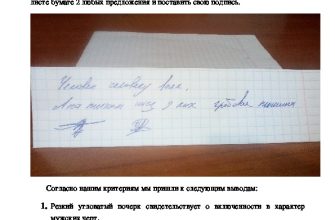 листе бумаге 2 любых предложения и поставить свою подпись.
Человек человеку волк,
А на
Согласно нашим критериям мы пришли к следующим выводам:
1. Резкий угловатый почерк свидетельствует о включенности в характер
мужских черт.